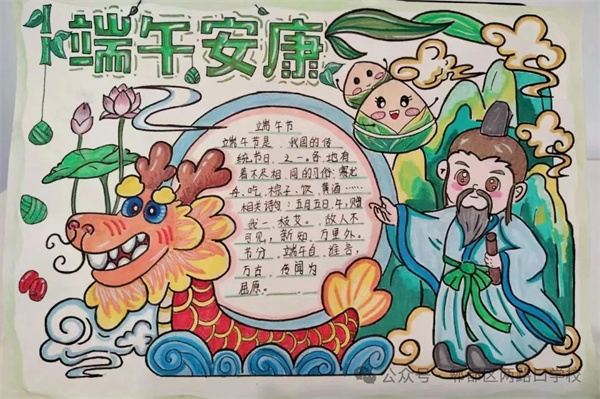 端午安康
端午节
端午节是我国的传
统节日之一。各地有
着不尽相同的习俗:赛龙
舟、吃粽子、饮黄酒……
相关诗句:五月五日午,赠
我一枝艾。故人不
可见,新知万里外。
节分端午自谁言,
万古传闻为
屈原。
公众号·郫都区两路口学校